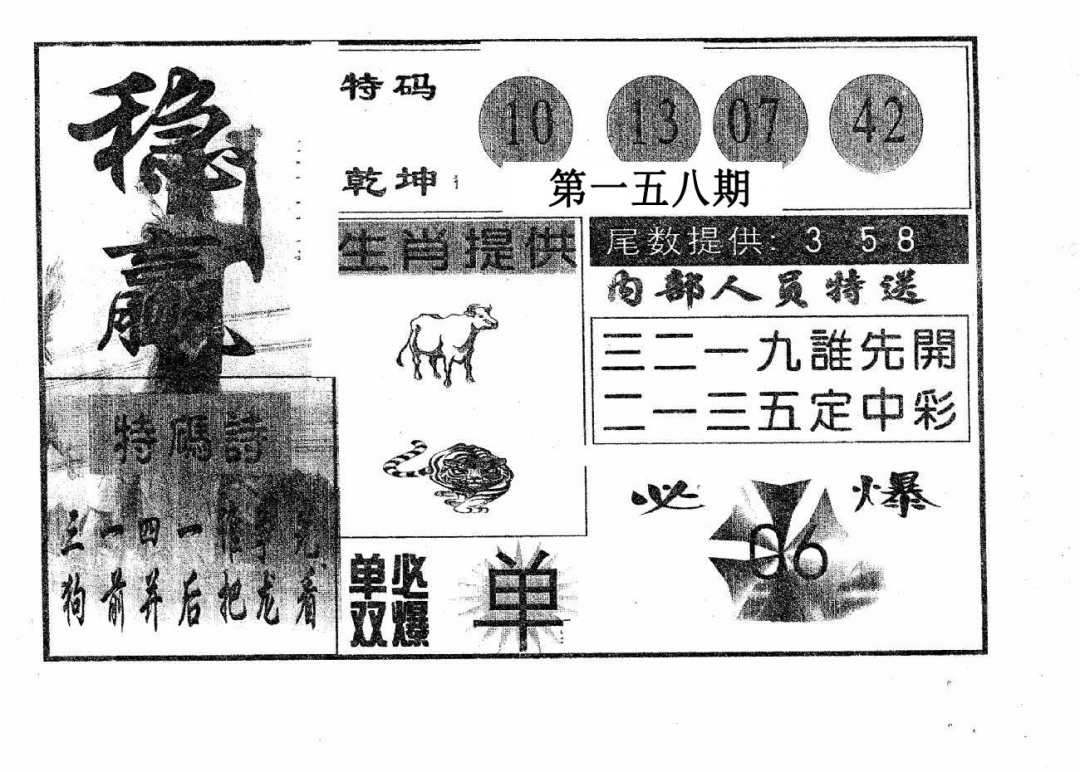 稳赢
特码
10 13 07 42
乾坤
第一五八期
生肖提供
尾数提供: 3 58
内部人员特送
三二一九誰先開
二一三五定中彩
特碼詩
三一四一谁争先
狗前并后把龙看
必爆
06
单双必爆
单